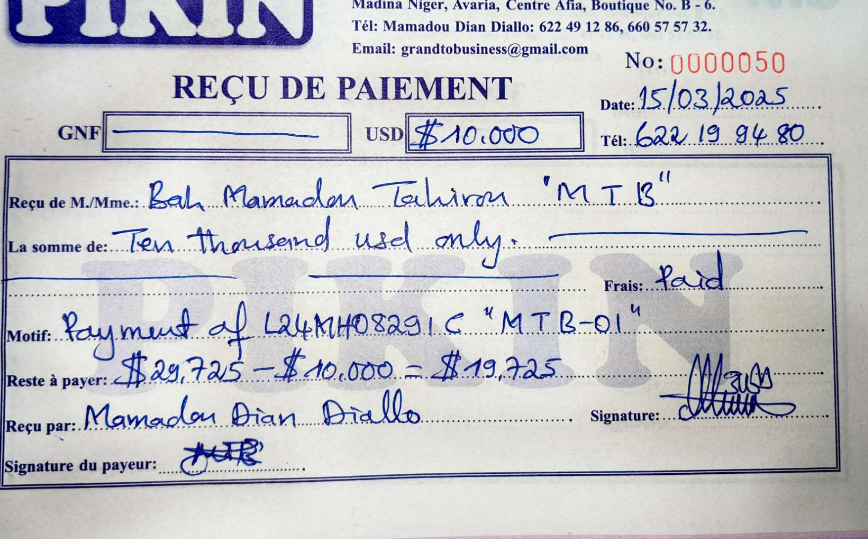 PIKIN
Madina Niger, Avaria, Centre Afia, Boutique No. B - 6.
Tél: Mamadou Dian Diallo: 622 49 12 86, 660 57 57 32.
Email: grandtobusiness@gmail.com
No: 0000050
REÇU DE PAIEMENT
Date: 15/03/2025
GNF USD $10.000
Tél: 622 19 94 80
Reçu de M./Mme.: Bah Mamadou Tahirou "MTB"
La somme de: Ten thousand usd only.
Frais: Paid
PIKIN
Motif: Payment of L24MH08291C "MTB-01"
Reste à payer: $29,725 - $10.000 = $19,725
Reçu par: Mamadou Dian Diallo Signature:
Signature du payeur: